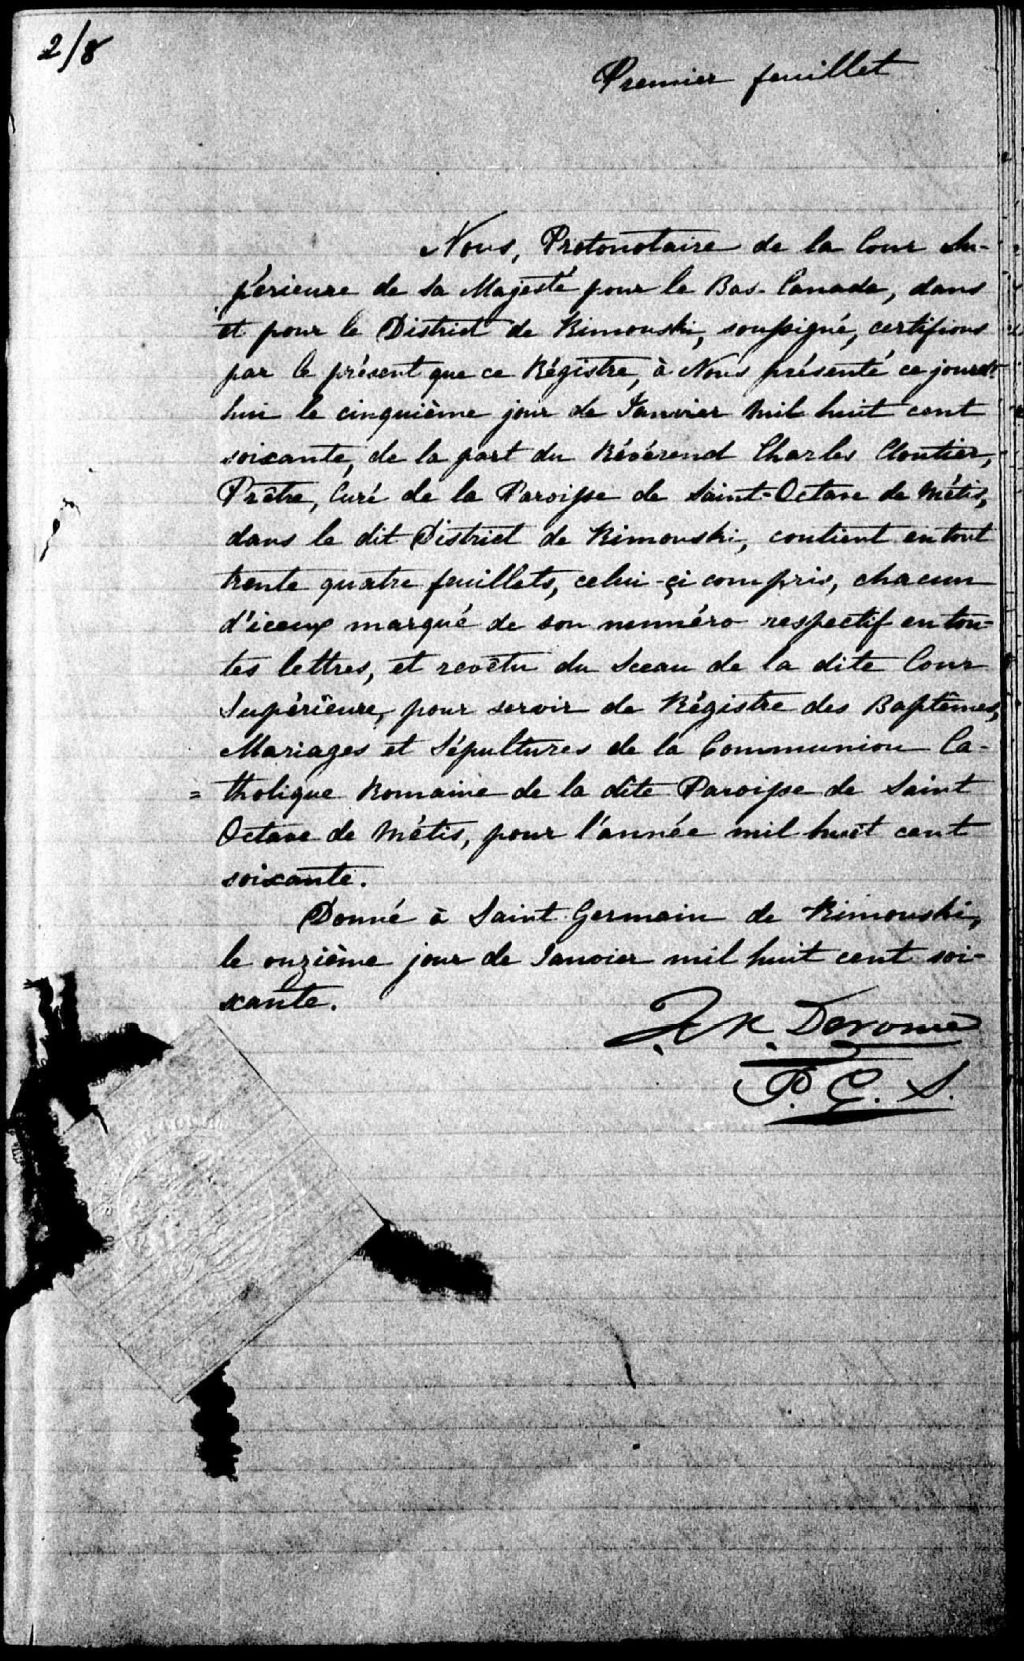 2/8
Premier feuillet
Nous, Protonotaire de la Cour Su-
périeure de Sa Majesté pour le Bas-Canada, dans
et pour le District de Rimouski, soussigné, certifions
par le présent que ce Régistre, à Nous présenté ce jourd'
hui le cinquième jour de Janvier mil huit cent
soixante, de la part du Révérend Charles Cloutier,
Prêtre, Curé de la Paroisse de Saint-Octave de Métis,
dans le dit District de Rimouski, contient en tout
trente quatre feuillets, celui-çi compris, chacun
d'iceux marqué de son numéro respectif en tou-
tes lettres, et revêtu du Sceau de la dite Cour
Supérieure, pour servir de Régistre des Baptêmes,
Mariages et Sépultures de la Communion Ca-
= tholique Romaine de la dite Paroisse de Saint
Octave de Métis, pour l'année mil huit cent
soixante.
Donné à Saint Germain de Rimouski,
le onzième jour de Janvier mil huit cent soi-
xante.
Derome
P. C. S.